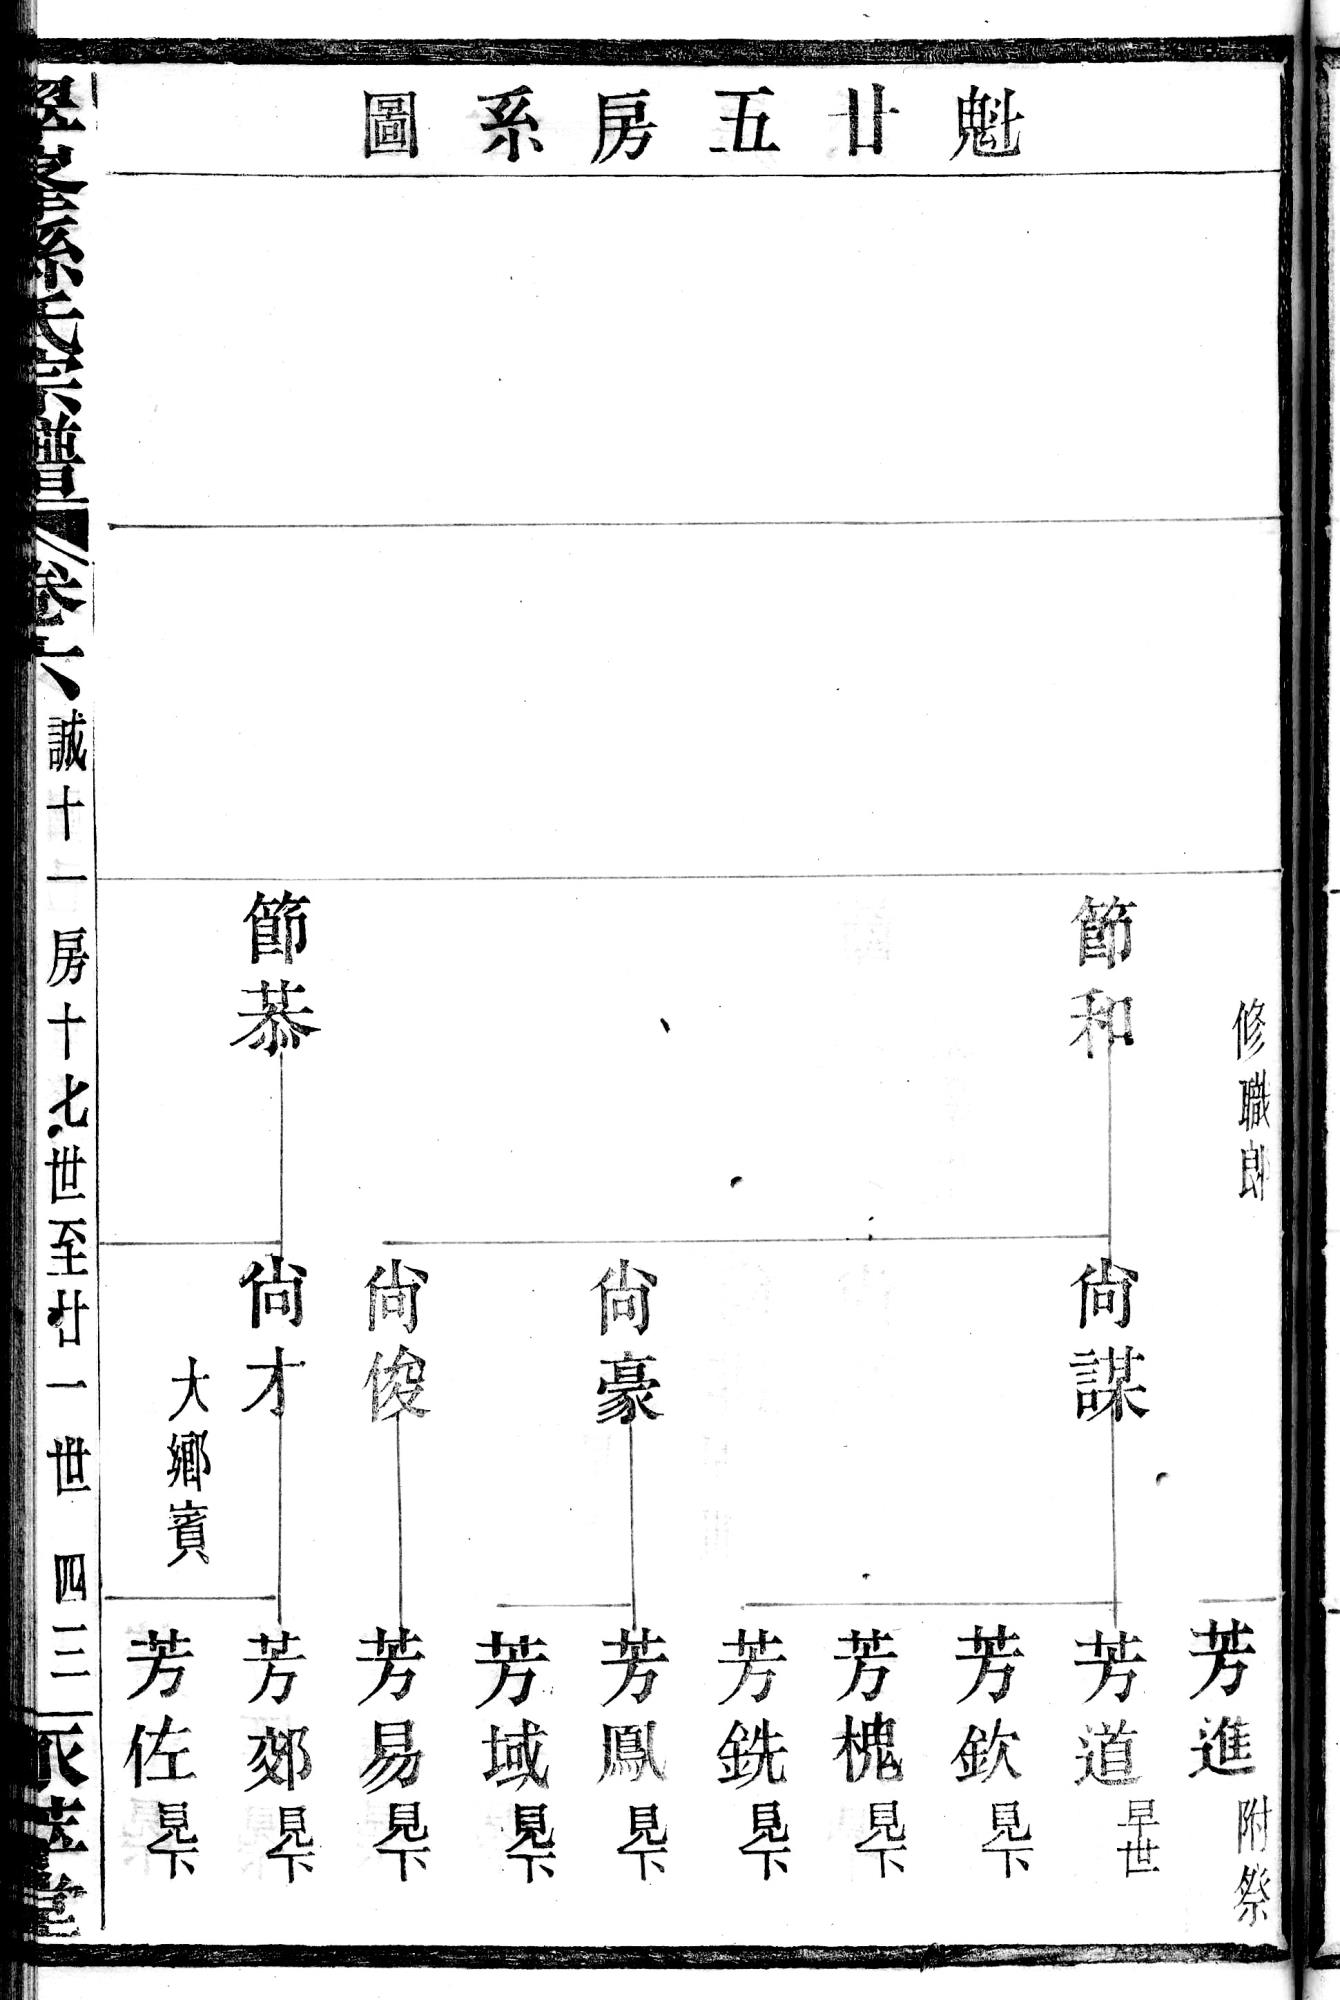 魁廿五房系圖
修職郎
節和
節恭
尙謀
尙豪
尙俊
尙才
大鄉賓
芳進 附祭
芳道 早世
芳欽 見下
芳槐 見下
芳銑 見下
芳鳳 見下
芳域 見下
芳易 見下
芳郊 見下
芳佐 見下
孫氏宗譜 卷六 誠十一房十七世至廿一世 四三 堂